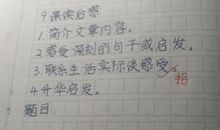 9课读后感
1.简介文章内容。
2.感受深刻的句子或启发。
3.联系生活实际谈感受。
4.升华启发。
题目: